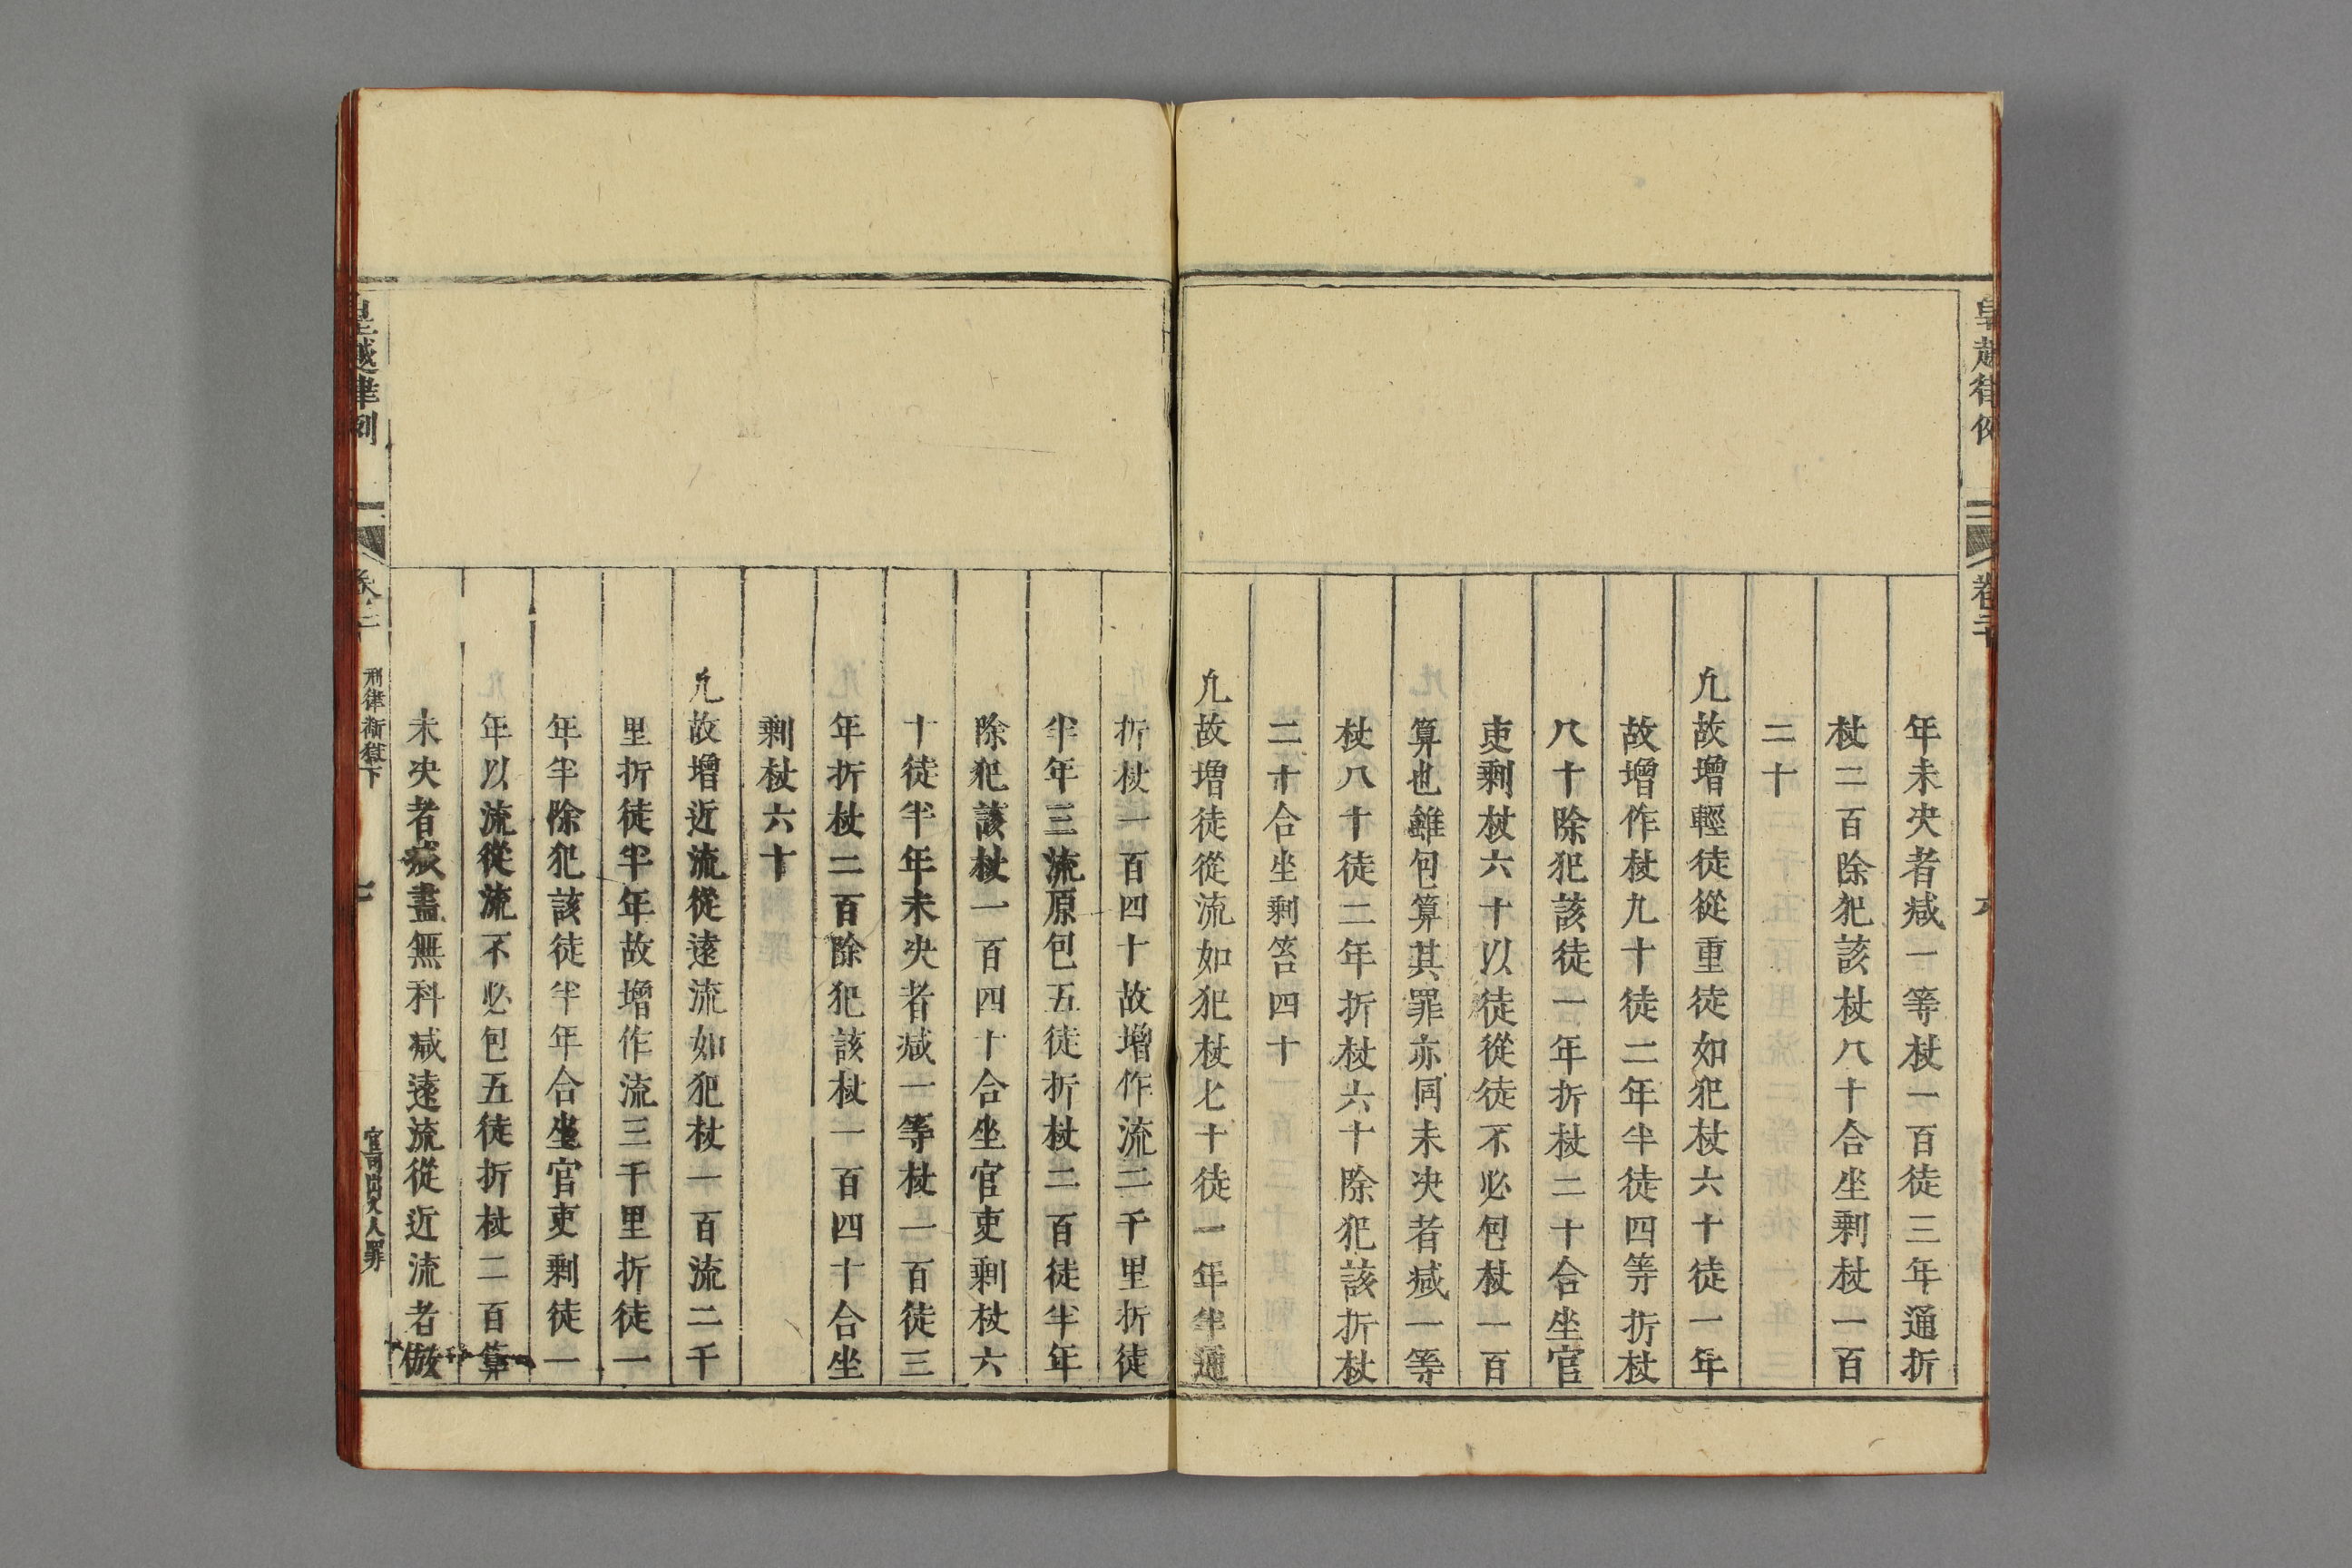 卷二十
年未决者减一等杖一百徒三年通折
杖二百除犯該杖八十合坐剩杖一百
二十
凢故增輕徒從重徒如犯杖六十徒一年
故增作杖九十徒二年半徒四等折杖
八十除犯該徒一年折杖二十合坐官
吏剩杖六十以徒從徒不必包杖一百
算也雖包算其罪亦同未决者减一等
杖八十徒二年折杖六十除犯該折杖
二十合坐剩笞四十
凢故增徒從流如犯杖七十徒一年半通
折杖一百四十故增作流二千里折徒
半年三流原包五徒折杖二百徒半年
除犯該杖一百四十合坐官吏剩杖六
十徒半年未决者减一等杖一百徒三
年折杖二百除犯該杖一百四十合坐
剩杖六十
凢故增近流從遠流如犯杖一百流二千
里折徒半年故增作流三千里折徒一
年半除犯該徒半年合坐官吏剩徒一
年以流從流不必包五徒折杖二百算
未决者㡿盡無科减遠流從近流者倣
皇越律例
刑律 斷獄下
官司出入人罪